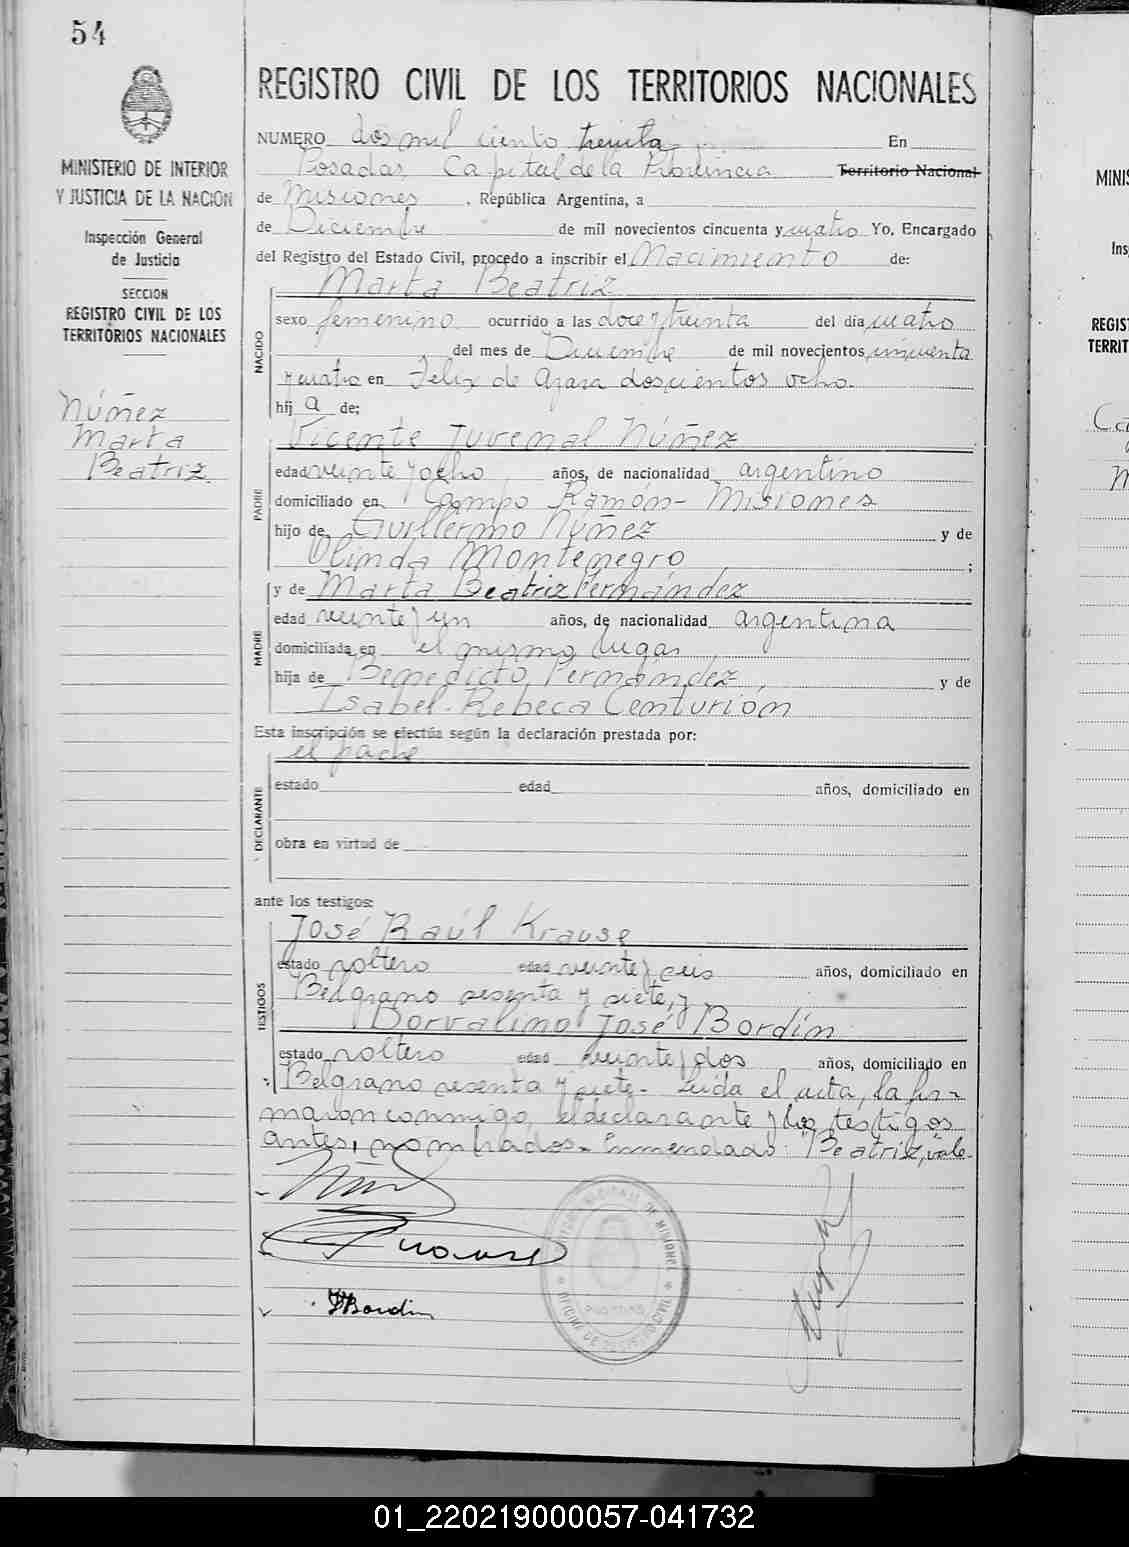 54
MINISTERIO DE INTERIOR
Y JUSTICIA DE LA NACION
Inspección General
de Justicia
SECCION
REGISTRO CIVIL DE LOS
TERRITORIOS NACIONALES
Núñez
Marta
Beatriz
REGISTRO CIVIL DE LOS TERRITORIOS NACIONALES
NUMERO dos mil ciento treinta En
Posadas, Capital de la Provincia Territorio Nacional
de Misiones, República Argentina, a
de Diciembre de mil novecientos cincuenta y cuatro Yo, Encargado
del Registro del Estado Civil, procedo a inscribir el Nacimiento de:
NACIDO
Marta Beatriz
sexo femenino ocurrido a las doce y treinta del día cuatro
del mes de Diciembre de mil novecientos cincuenta
y cuatro en Felix de Azara doscientos ocho.
hij a de:
PADRE
Vicente Juvenal Núñez
edad veinte y ocho años, de nacionalidad argentino
domiciliado en Campo Ramón - Misiones
hijo de Guillermo Núñez y de
Olinda Montenegro ;
MADRE
y de Marta Beatriz Fernández
edad veinte y un años, de nacionalidad argentina
domiciliada en el mismo lugar
hija de Benedicto Fernández y de
Isabel Rebeca Centurión
Esta inscripción se efectúa según la declaración prestada por:
DECLARANTE
el padre
estado edad años, domiciliado en
obra en virtud de
ante los testigos:
TESTIGOS
José Raúl Krause
estado soltero edad veinte y seis años, domiciliado en
Belgrano sesenta y siete, y
Dorvalino José Bordín
estado soltero edad veinte y dos años, domiciliado en
Belgrano sesenta y siete.- Leída el acta, la fir-
maron conmigo, el declarante y los testigos
antes nombrados.- Enmendado: "Beatriz, vale.
Krause
JBordin
OFICINA DE REGISTRO CIVIL
MISIONES
MINIS
Ins
REGIST
TERRIT
01_220219000057-041732